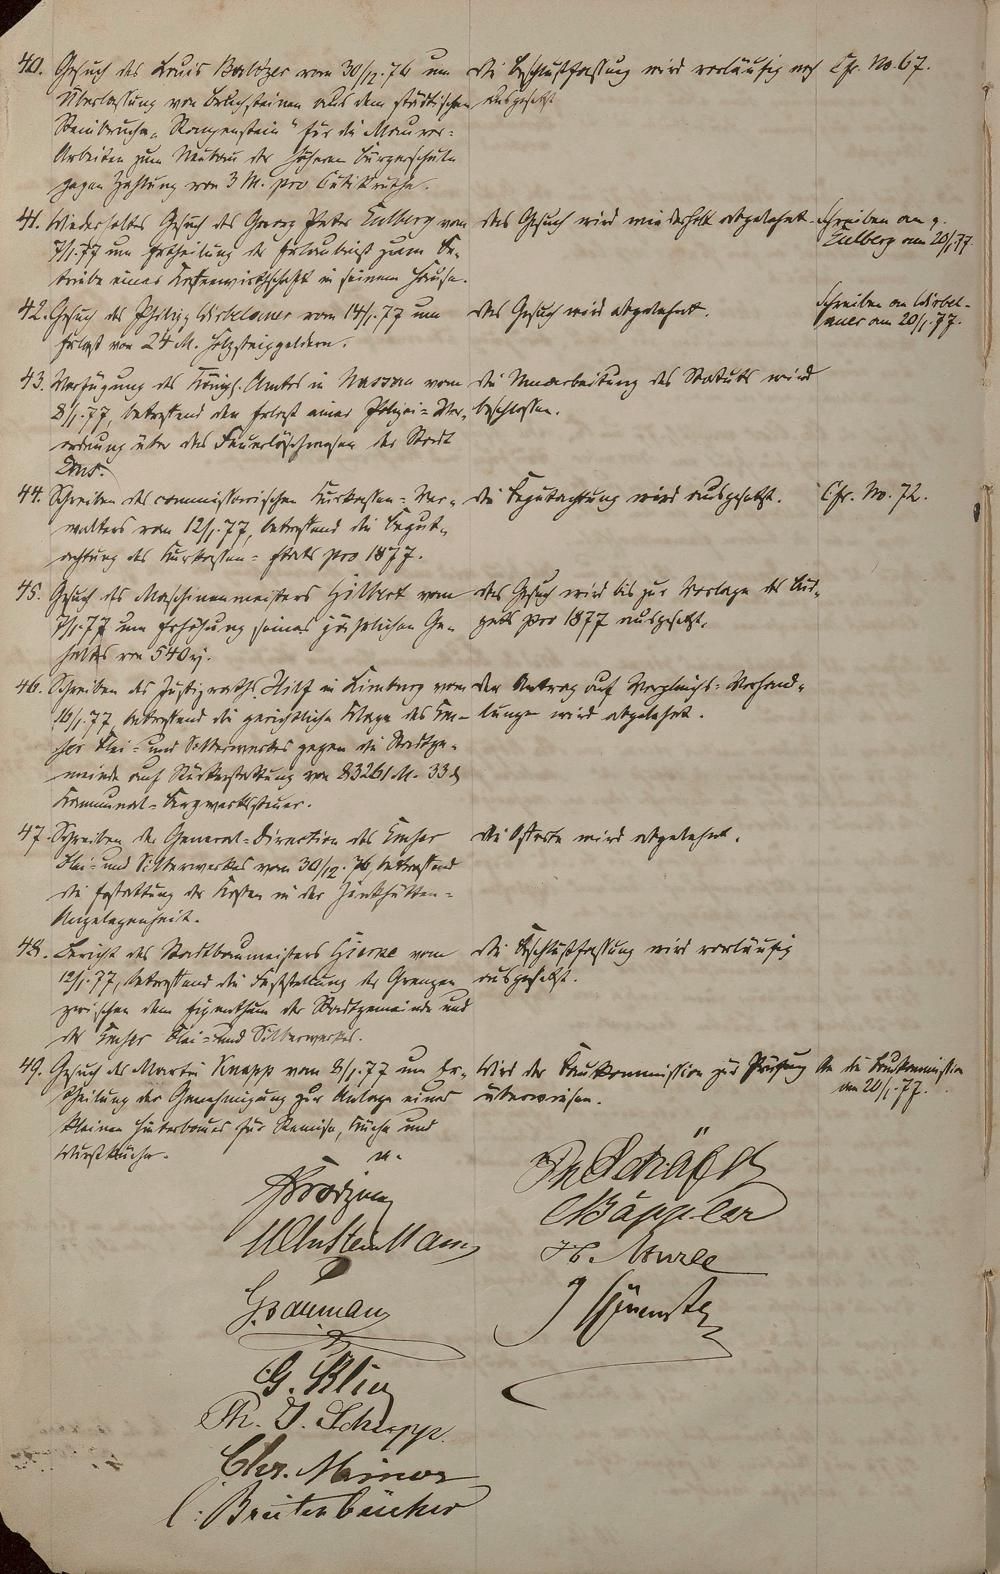 40. Gesuch des Louis Balzer vom 30/12.76 um
Überlassung von Bruchsteinen aus dem städtischen
Steinbruche „ “ für die Maurer=
Arbeiten zum Neubau der höheren Bürgerschule
gegen Zahlung von 3 M. pro Cubikruthe.
die Beschlußfassung wird vorläufig noch
ausgesetzt
Cfr. No. 67.
41. Wiederholtes Gesuch des Georg Peter Eulberg vom
7/1.77 um Ertheilung der Erlaubniß zum Be-
triebe einer Kaffeewirthschaft in seinem Hause.
das Gesuch wird wiederholt abgelehnt.
Schreiben an g.
Eulberg am 20/1.77.
42. Gesuch des Philipp Wirbelauer vom 14/1.77 um
Erlaß von 24 M. Holzsteiggeldern.
das Gesuch wird abgelehnt.
Schreiben an Wirbel-
auer am 20/1.77.
43. Verfügung des Königl. Amtes in Nassau vom
8/1.77, betreffend den Erlaß einer Polizei=Ver-
ordnung über das Feuerlöschwesen der Stadt
Ems.
die Umarbeitung des Statuts wird
beschlossen.
44. Schreiben des commissarischen Kurkassen=Ver-
walters vom 12/1.77, betreffend die Begut-
achtung des Kurkassen=Etats pro 1877.
die Begutachtung wird ausgesetzt.
Cfr. No. 72.
45. Gesuch des Maschinenmeisters Hilbert vom
7/1.77 um Erhöhung seines jährlichen Ge-
haltes von 540
das Gesuch wird bis zur Vorlage des Bud-
gets pro 1877 ausgesetzt.
46. Schreiben des Justizraths Hilf in Limburg vom
16/1.77, betreffend die gerichtliche Klage des Em-
ser Blei= und Silberwerkes gegen die Stadtge-
meinde auf Rückerstattung von 83261 M. 33 ₰
Kommunal=Bergwerkssteuer.
der Antrag auf Vergleichs=Verhand-
lungen wird abgelehnt.
47. Schreiben der General=Direction des Emser
Blei= und Silberwerkes vom 30/12.76, betreffend
die Erstattung der Kosten in der Zinkhütten=
Angelegenheit.
die Offerte wird abgelehnt.
48. Bericht des Stadtbaumeisters vom
12/1.77, betreffend die Feststellung der Grenzen
zwischen dem Eigenthum der Stadtgemeinde und
des Emser Blei= und Silberwerkes.
die Beschlußfassung wird vorläufig
ausgesetzt.
49. Gesuch des Martin Knapp vom 8/1.77 um Er-
theilung der Genehmigung zur Anlage eines
kleinen Hinterbaues für Remise, Küche und
Wurstküche.
wird der Baukommission zur Prüfung
überwiesen.
An die Baukommission
am 20/1.77.
Ph Schäfer
Bäppler
G. Bauman
G. Klin
Ph. J. Schupp.
Chr. Minor
C. Breitenbücher